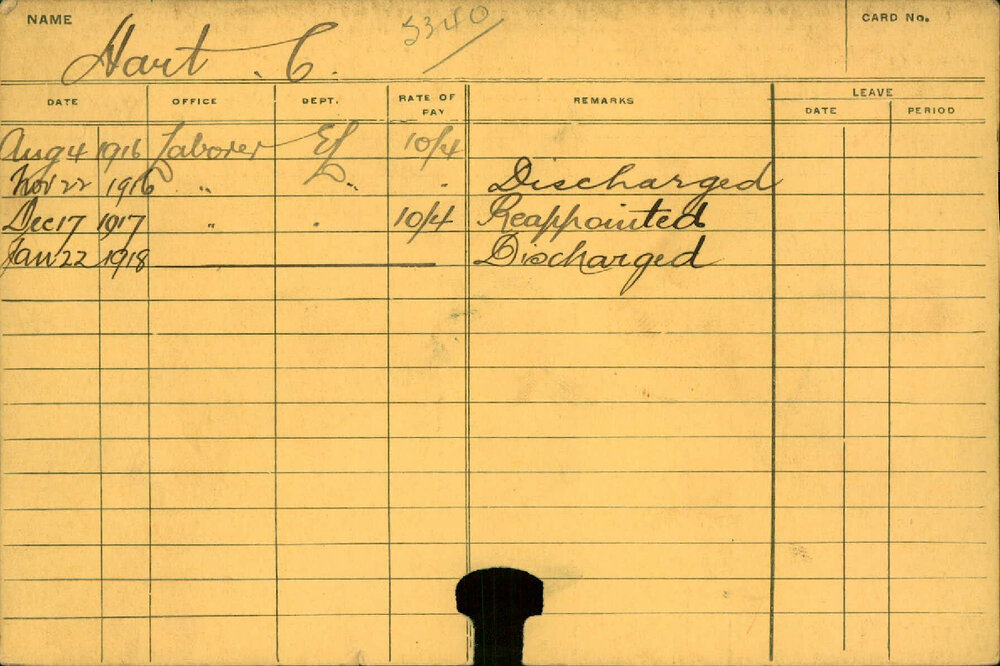 NAME Hart. C. 5340 CARD No.
DATE OFFICE DEPT. RATE OF PAY REMARKS LEAVE
DATE PERIOD
Aug 4 1916 Laborer EL 10/4
Nov 22 1916 " " " Discharged
Dec 17 1917 " " 10/4 Reappointed
Jan 22 1918 Discharged